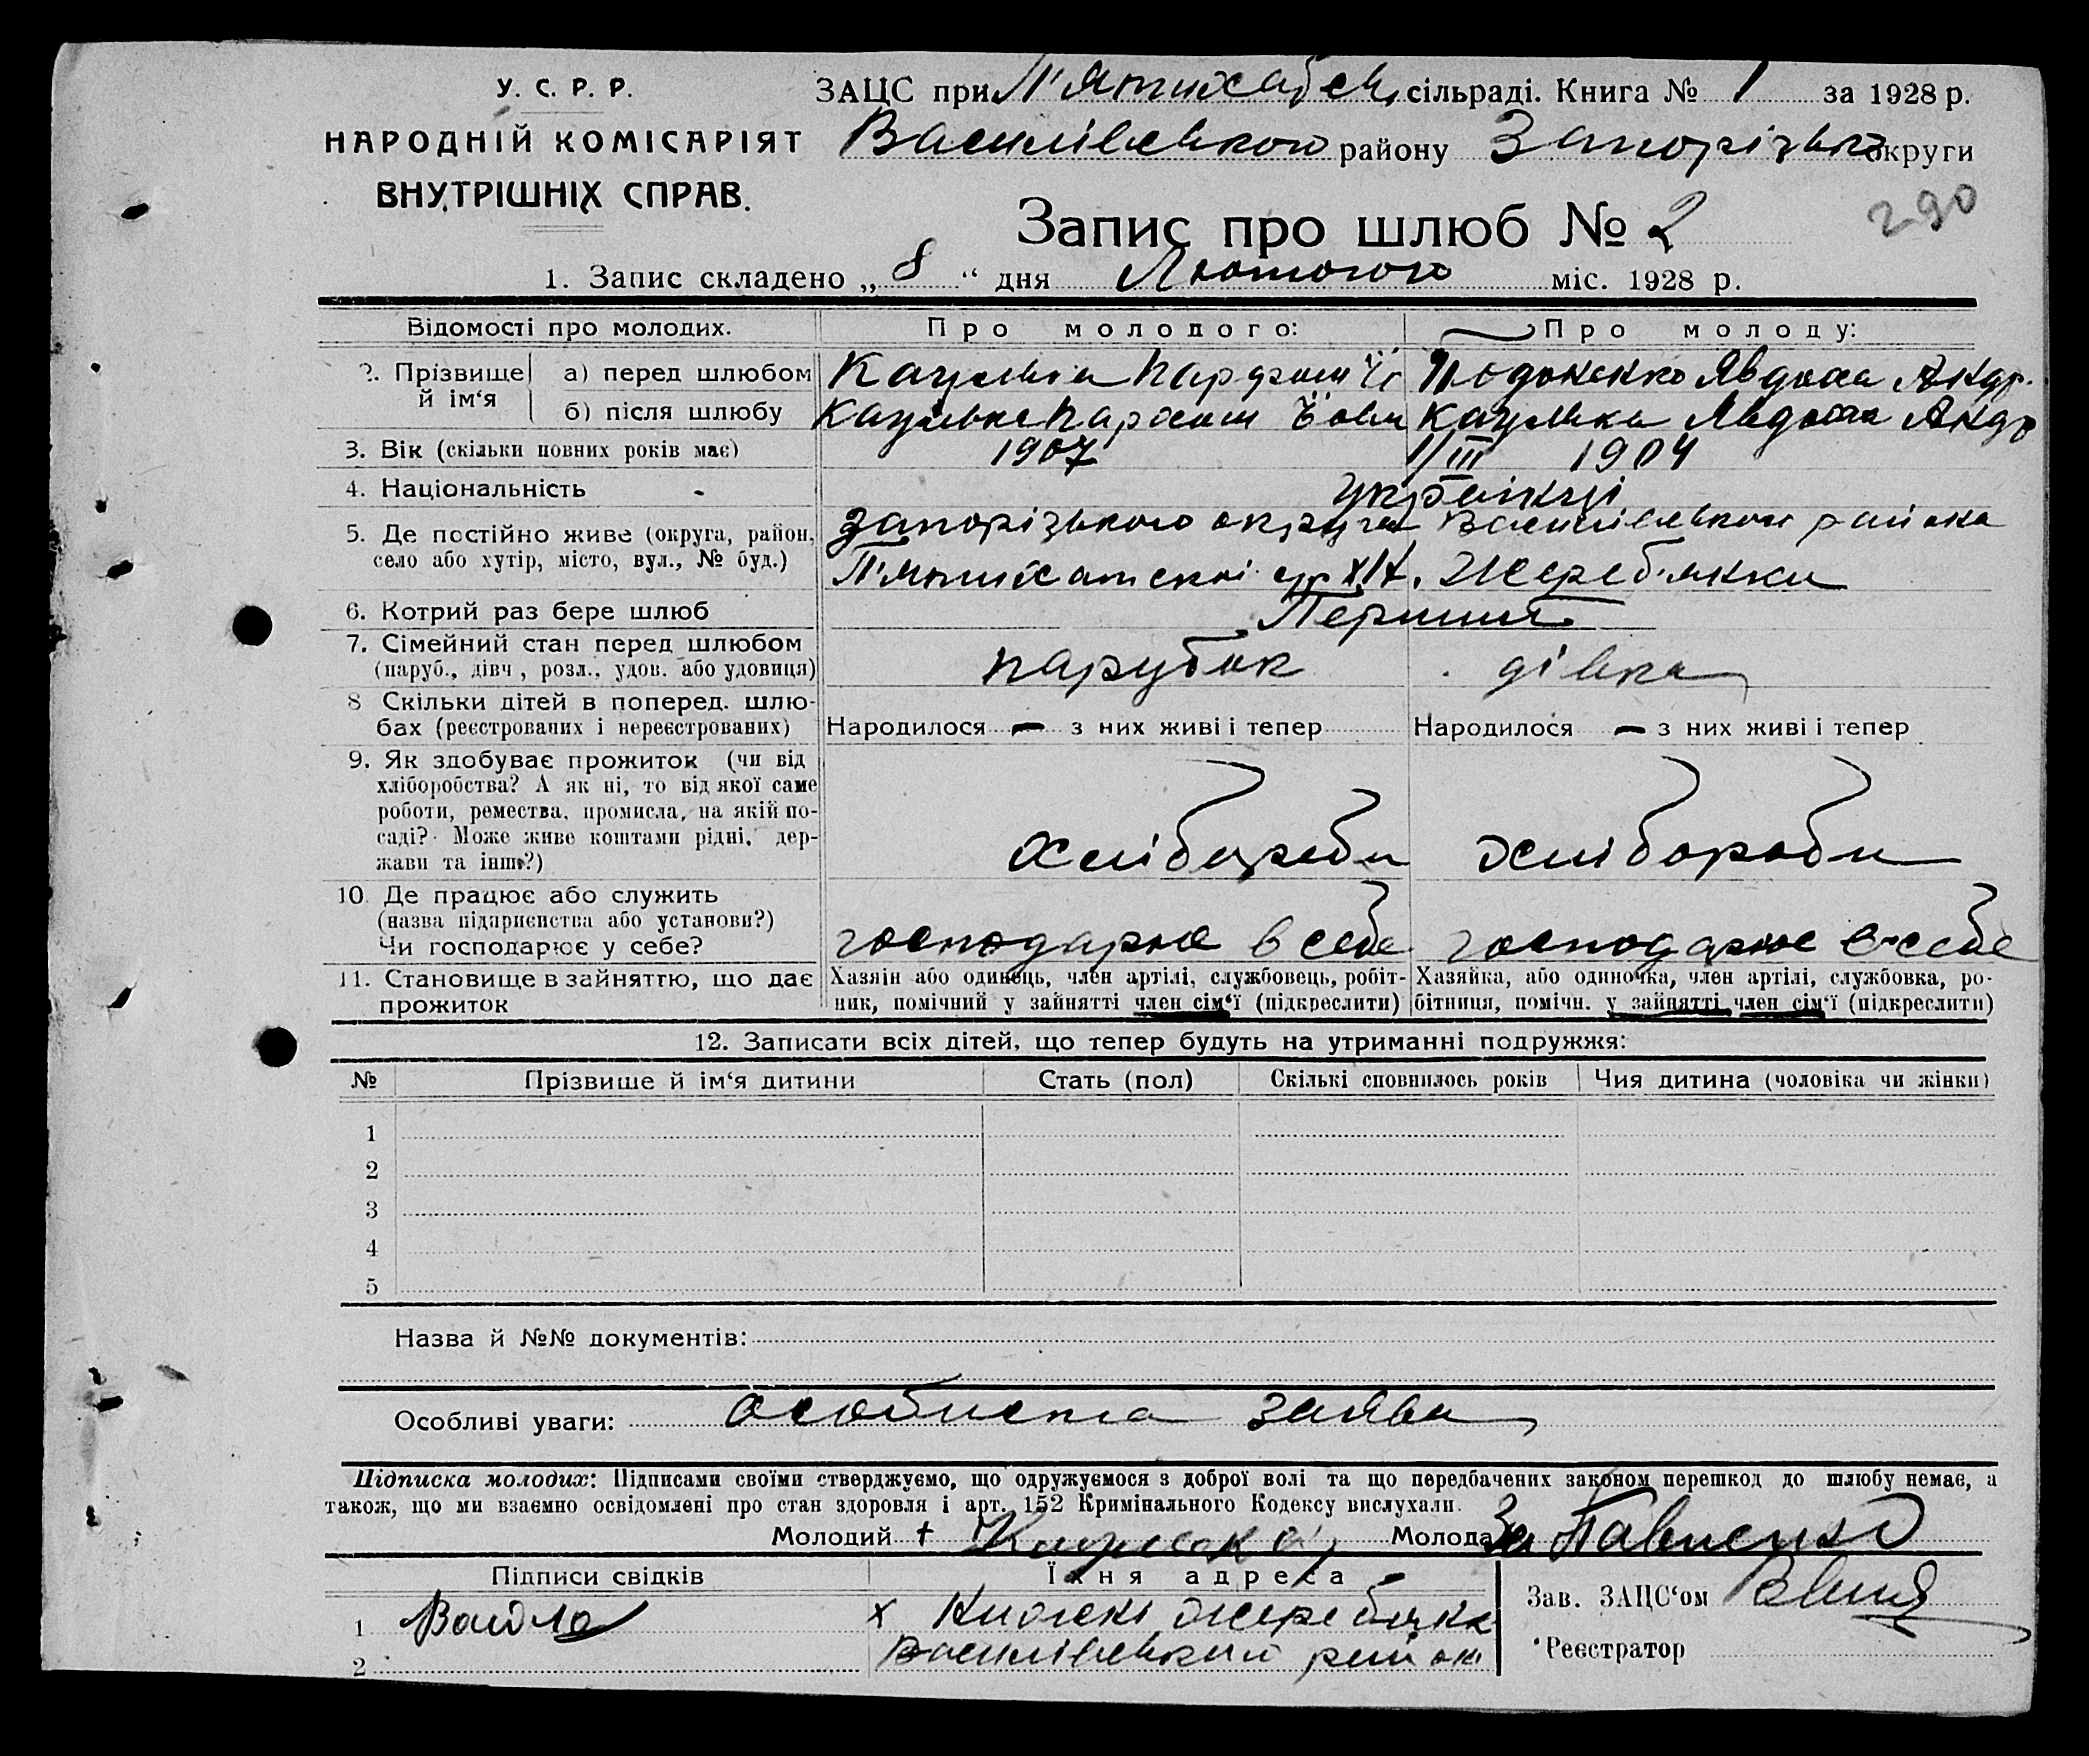 У. С. Р. Р.
НАРОДНІЙ КОМІСАРІЯТ
ВНУТРІШНІХ СПРАВ.
ЗАЦС при П'ятихатськ. сільраді. Книга № 1 за 1928 р.
Василівського району Запорізько округи
290
Запис про шлюб № 2
1. Запис складено „ 8 “ дня Лютого міс. 1928 р.
Відомості про молодих. Про молодого: Про молоду:
2. Прізвище й ім‘я а) перед шлюбом Явдоха Андр.
б) після шлюбу Явдоха Андр
3. Вік (скільки повних років має) 1907 1/III 1904
4. Національність Українці
5. Де постійно живе (округа, район, село або хутір, місто, вул., № буд.) Запорізького округа Василівського района
П'ятихатської с/р х. Жереб'янки
6. Котрий раз бере шлюб Перший
7. Сімейний стан перед шлюбом (паруб., дівч, розл., удов. або удовиця) парубок дівка
8 Скільки дітей в поперед. шлюбах (реєстрованих і нереєстрованих) Народилося — з них живі і тепер Народилося — з них живі і тепер
9. Як здобуває прожиток (чи від хліборобства? А як ні, то від якої саме роботи, ремества, промисла, на якій посаді? Може живе коштами рідні, держави та інше?) хлібороби хлібороби
10. Де працює або служить (назва підприємства або установи?) Чи господарює у себе? господарює в себе господарює в себе
11. Становище в зайняттю, що дає прожиток
Хазяін або одинець, член артілі, службовець, робітник, помічний у зайнятті член сім‘ї (підкреслити)
Хазяйка, або одиночка, член артілі, службовка, робітниця, помічн. у зайнятті член сім‘ї (підкреслити)
12. Записати всіх дітей, що тепер будуть на утриманні подружжя:
№ Прізвище й ім‘я дитини Стать (пол) Скількі сповнилось років Чия дитина (чоловіка чи жінки)
1
2
3
4
5
Назва й №№ документів:
Особливі уваги: особиста заява
Підписка молодих: Підписами своїми стверджуємо, що одружуємося з доброї волі та що передбачених законом перешкод до шлюбу немає, а
також, що ми взаємно освідомлені про стан здоровля і арт. 152 Кримінального Кодексу вислухали.
Молодий + Молода За
Підписи свідків Їхня адреса
1 х Жереб'янка
2 Василівський район
Зав. ЗАЦС‘ом
Реєстратор